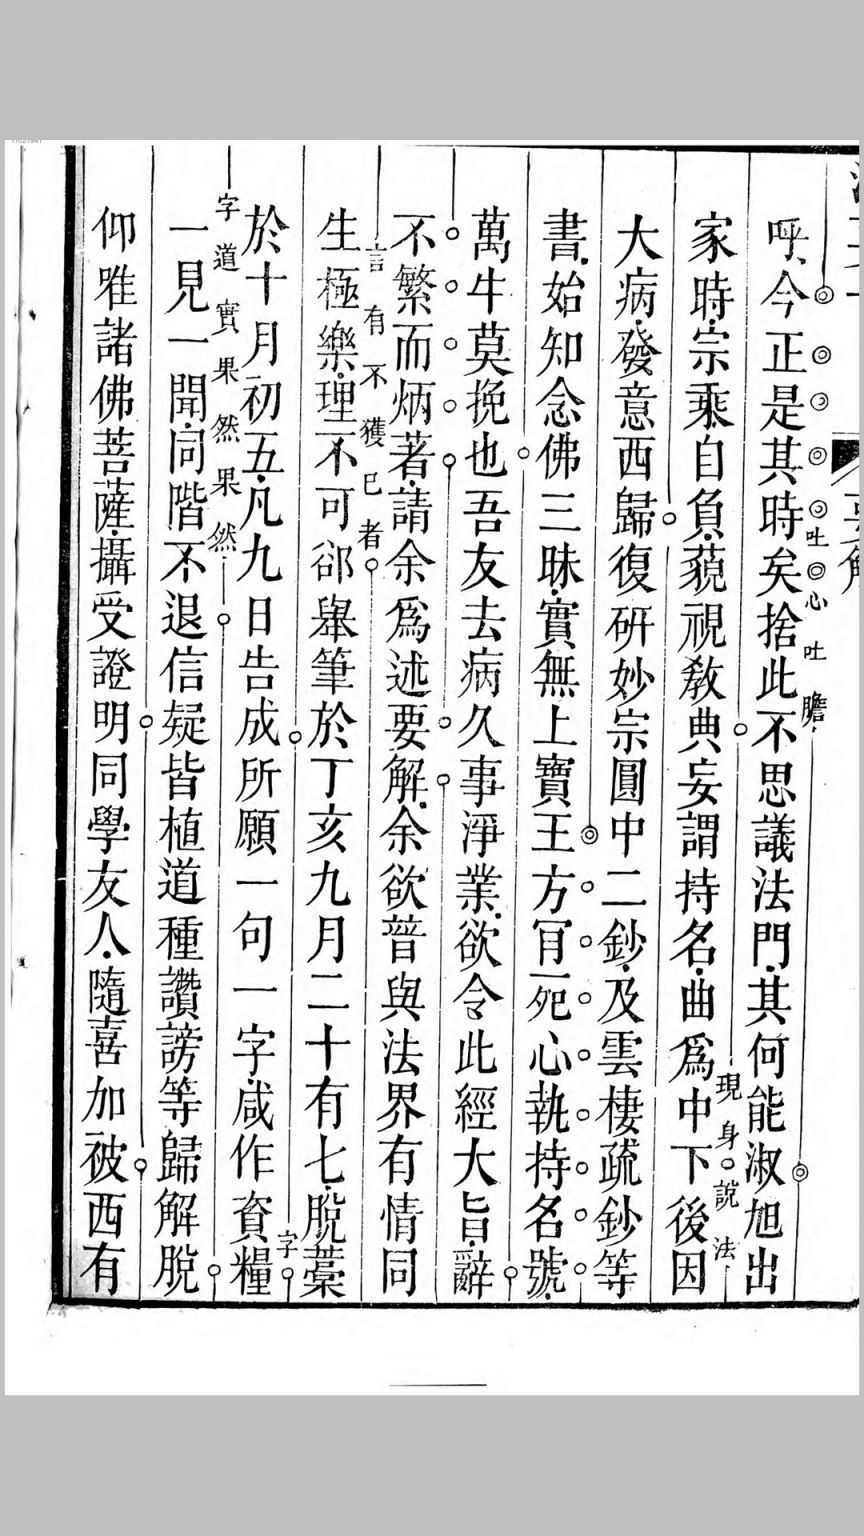 呼今正是其時矣捨此不思議法門其何能淑旭出
吐心吐膽
家時宗乘自負藐視教典妄謂持名曲爲中下後因
現身說法
大病發意西歸復研妙宗圓中二鈔及雲棲疏鈔等
書始知念佛三昧實無上寶王方肎死心執持名號
萬牛莫挽也吾友去病久事淨業欲令此經大旨辭
不繁而炳著請余爲述要解余欲普與法界有情同
言有不獲已者
生極樂理不可卻舉筆於丁亥九月二十有七脫藁
於十月初五凡九日告成所願一句一字咸作資糧
字字道實果然果然
一見一聞同階不退信疑皆植道種讚謗等歸解脫
仰唯諸佛菩薩攝受證明同學友人隨喜加被西有